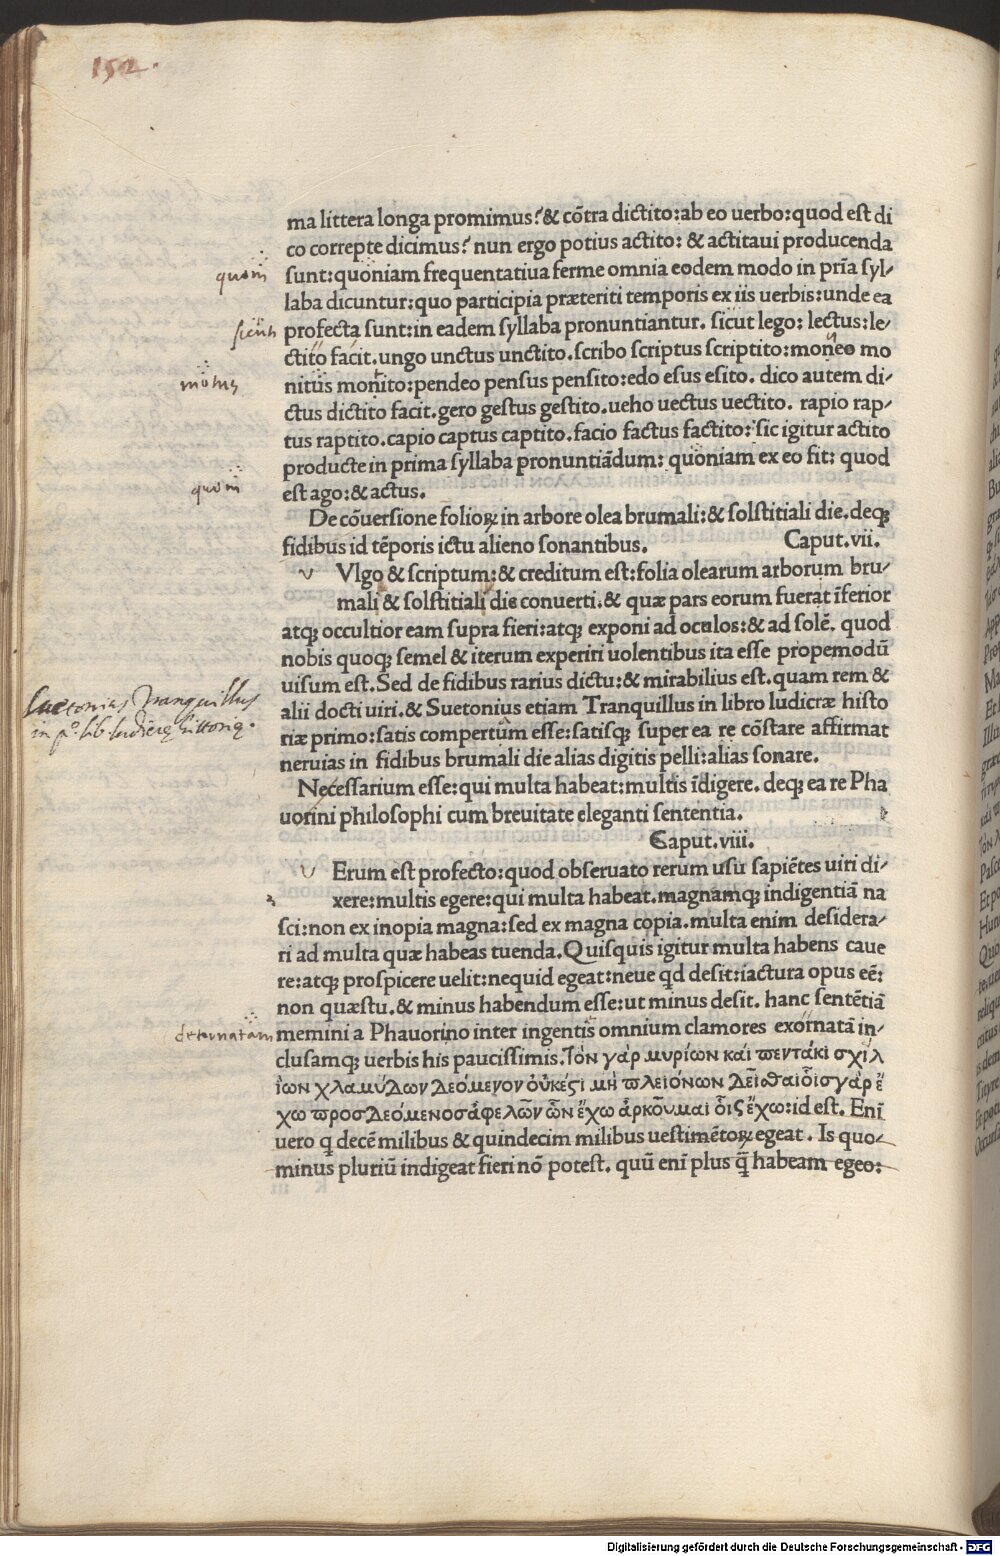 152.
ma littera longa promimus? & cõtra dictito: ab eo uerbo: quod est di
co correpte dicimus? nun ergo potius actito: & actitaui producenda
quom̃
sunt: quoniam frequentatiua ferme omnia eodem modo in prĩa syl/
laba dicuntur: quo participia præteriti temporis ex iis uerbis: unde ea
profecta sunt: in eadem syllaba pronuntiantur. sicut lego: lectus: le/
ctito facit. ungo unctus unctito. scribo scriptus scriptito: moneo mo
nitus monito: pendeo pensus pensito: edo esus esito. dico autem di/
ctus dictito facit. gero gestus gestito. ueho uectus uectito. rapio rap/
tus raptito. capio captus captito. facio factus factito: sic igitur actito
producte in prima syllaba pronuntiãdum: quoniam ex eo fit: quod
quom̃
est ago: & actus.
De cõuersione folioꝝ in arbore olea brumali: & solstitiali die. deqꝫ
fidibus id tẽporis ictu alieno sonantibus. Caput. vii.
v Vlgo & scriptum: & creditum est: folia olearum arborum bru/
mali & solstitiali die conuerti. & quæ pars eorum fuerat ĩferior
atqꝫ occultior eam supra fieri: atqꝫ exponi ad oculos: & ad solẽ. quod
nobis quoqꝫ semel & iterum experiri uolentibus ita esse propemodũ
uisum est. Sed de fidibus rarius dictu: & mirabilius est. quam rem &
Suetonius Tranquillus
alii docti uiri. & Suetonius etiam Tranquillus in libro ludicræ histo
in p.º lib. ludicrę historię.
riæ primo: satis compertum esse: satisqꝫ super ea re cõstare affirmat
neruias in fidibus brumali die alias digitis pelli: alias sonare.
Necessarium esse: qui multa habeat: multis ĩdigere. deqꝫ ea re Pha
uorini philosophi cum breuitate eleganti sententia.
Caput. viii.
v Erum est profecto: quod obseruato rerum usu sapiẽtes uiri di/
xere: multis egere: qui multa habeat. magnamqꝫ indigentiã na
sci: non ex inopia magna: sed ex magna copia. multa enim desidera/
ri ad multa quæ habeas tuenda. Quisquis igitur multa habens caue
re: atqꝫ prospicere uelit: nequid egeat: neue qd desit: iactura opus eẽ:
non quæstu. & minus habendum esse: ut minus desit. hanc sentẽtiã
detornatam
memini a Phauorino inter ingentis omnium clamores exornatã in/
clusamqꝫ uerbis his paucissimis. Τὸν γὰρ μυρίων κάι πεντάκι σχίλ
ίων χλαμύδων δεόμενον ὀυκέςι μὴ πλειόνων δεῖσθαι ὁῖσ γὰρ ἔ
χω προσδεόμενοσ ἀφελῶν ὧν ἔχω ἀρκοῦμαι ὁῖς ἔχω: id est. Enĩ
uero q decẽ milibus & quindecim milibus uestimẽtoꝝ egeat. Is quo-
minus pluriũ indigeat fieri nõ potest. quũ enĩ plus q̃ habeam egeo:
Digitalisierung gefördert durch die Deutsche Forschungsgemeinschaft - DFG